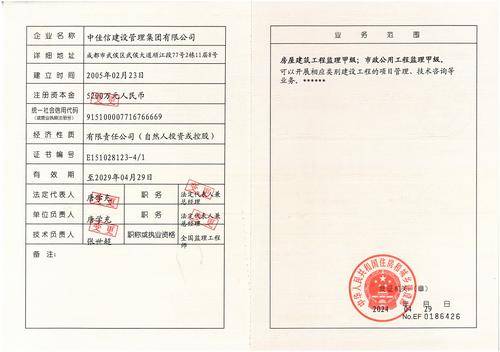 企业名称 中佳信建设管理集团有限公司
详细地址 成都市武侯区武侯大道顺江段77号2栋11层8号
建立时间 2005年02月23日
注册资本金 5200万元人民币
统一社会信用代码
(或营业执照注册号) 915100007716766669
经济性质 有限责任公司(自然人投资或控股)
证书编号 E151028123-4/1
有效期 至2029年04月29日
法定代表人 变更 职务 法定代表人兼总经理 变更
单位负责人 变更 职务 法定代表人兼总经理 变更
技术负责人 张世超 职称或执业资格 全国监理工程师
备注：
业务范围
房屋建筑工程监理甲级；市政公用工程监理甲级。
可以开展相应类别建设工程的项目管理、技术咨询等
业务。******
中华人民共和国住房和城乡建设部
发证机关(章)
2024 04 29
月 日
No.EF 0186426